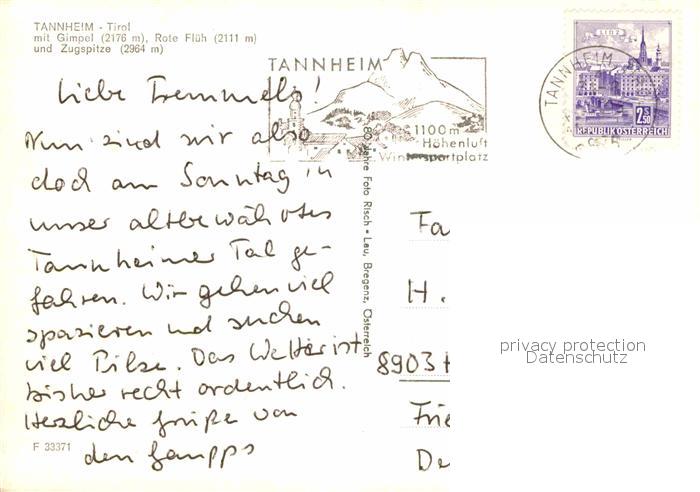 TANNHEIM - Tirol
mit Gimpel (2176 m), Rote Flüh (2111 m)
und Zugspitze (2964 m)
TANNHEIM
1100 m
Höhenluft
Wintersportplatz
TANNHEIM
LINZ
2.50
REPUBLIK ÖSTERREICH
Liebe Tremmels!
Nun sind wir also
doch am Sonntag in
unser altbewährtes
Tannheimer Tal ge-
fahren. Wir gehen viel
spazieren und suchen
viel Pilze. Das Wetter ist
bisher recht ordentlich.
Herzliche Grüße von
den
F 33371
80 Jahre Foto Risch - Lau, Bregenz, Österreich
Fa
H.
8903 H
Frie
De
privacy protection
Datenschutz